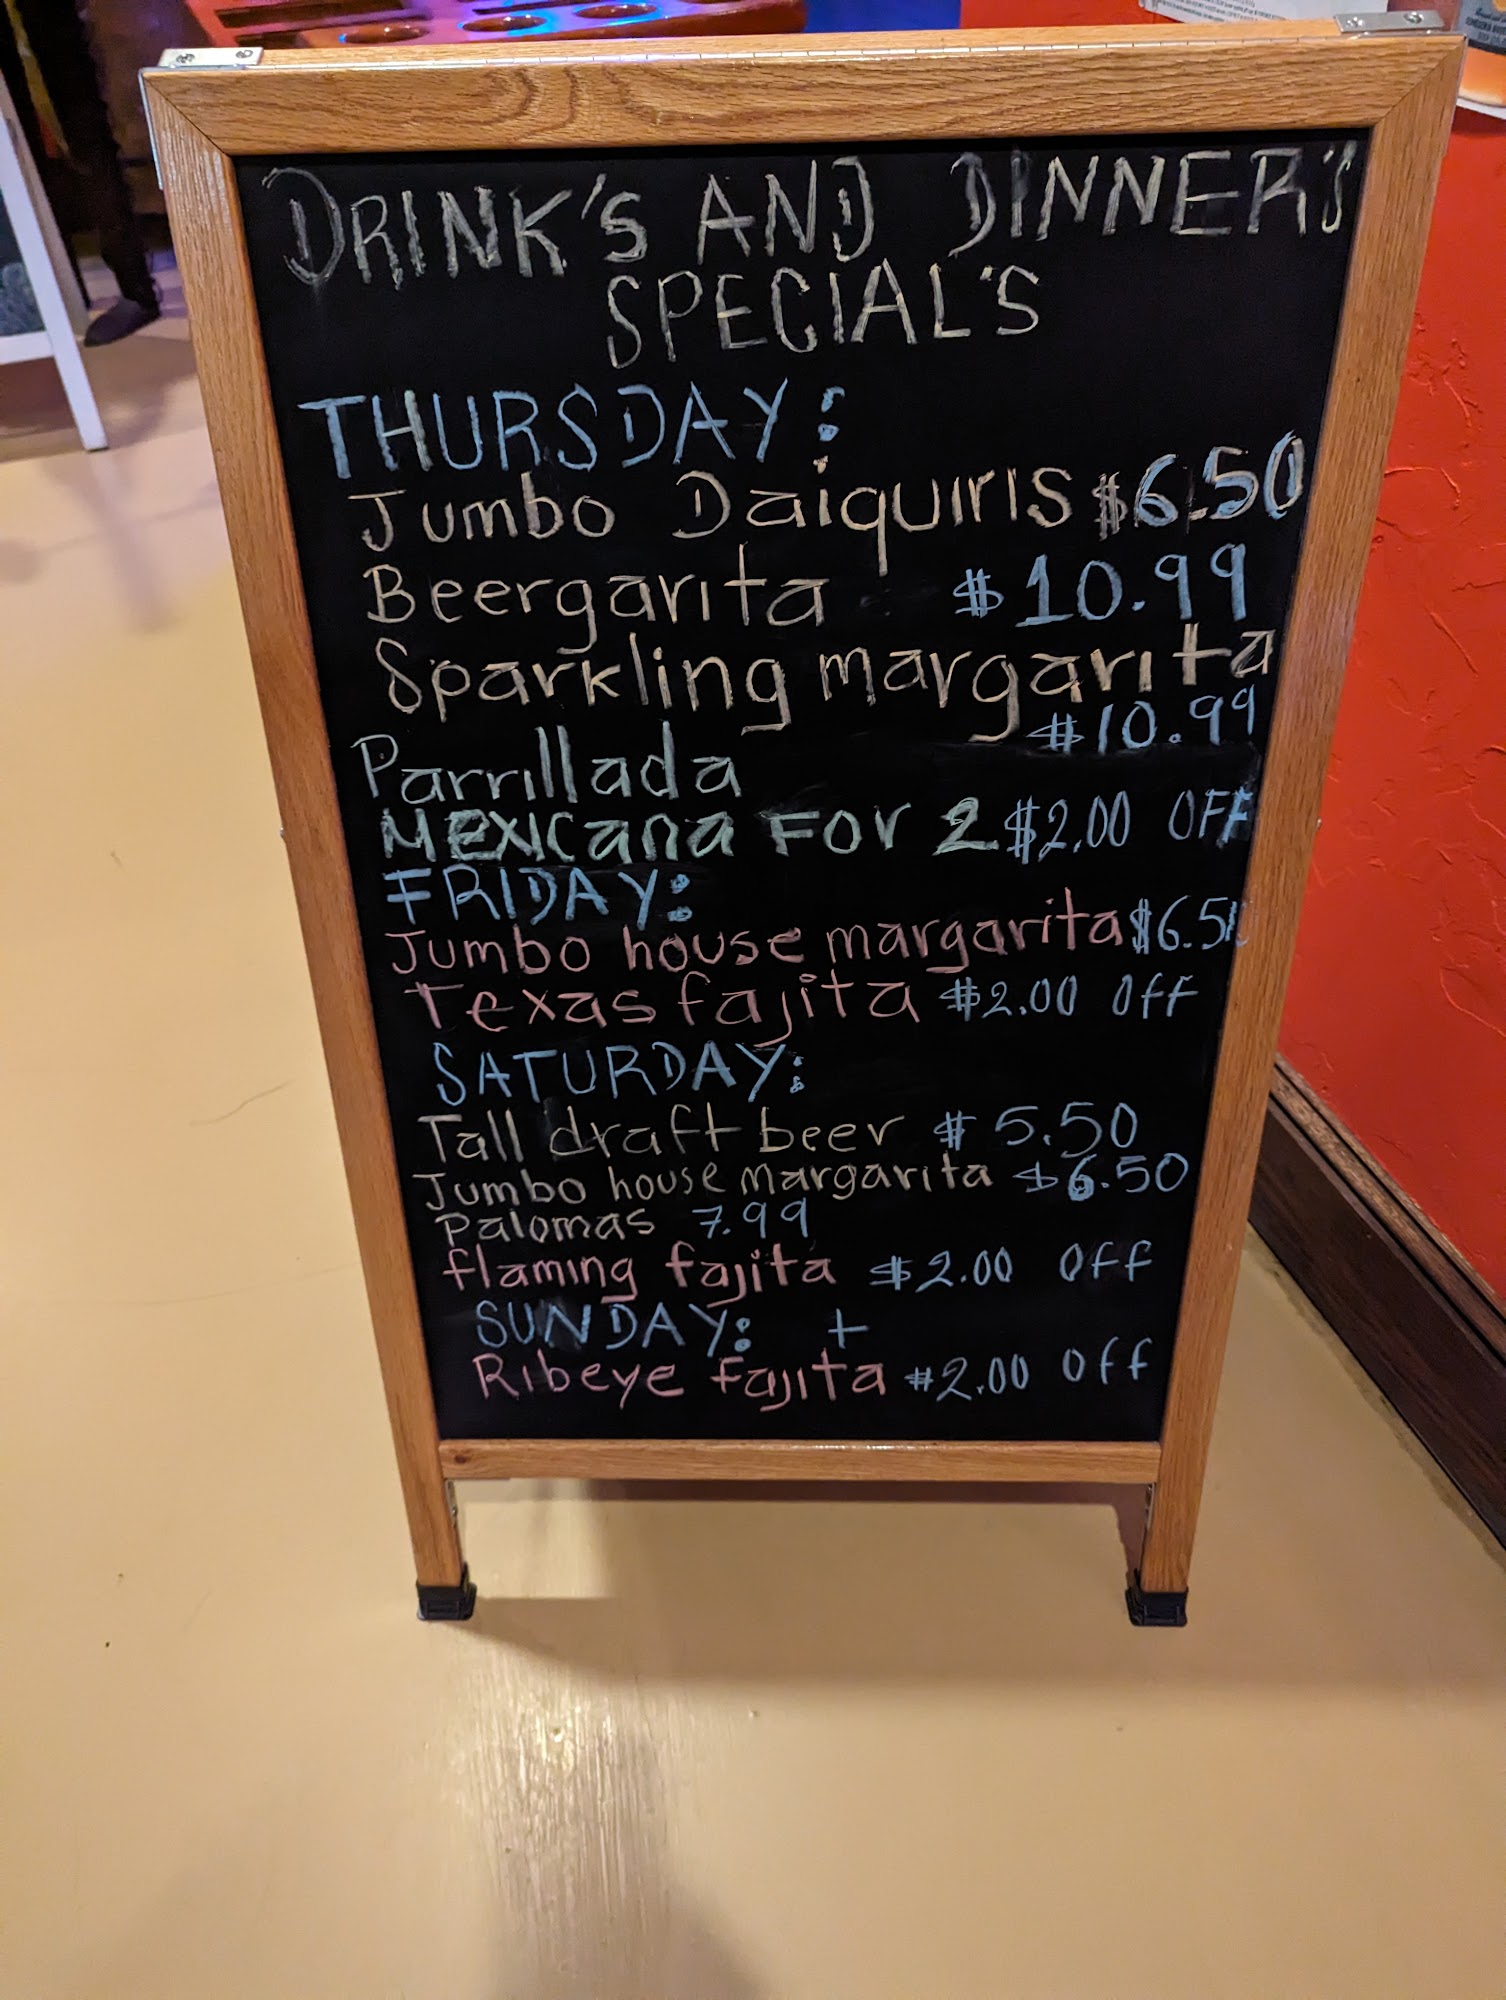 DRINK'S AND DINNER'S
SPECIAL'S
THURSDAY:
Jumbo Daiquiris $6.50
Beergarita $10.99
Sparkling margarita
$10.99
Parrillada
Mexicana For 2 $2.00 OFF
FRIDAY:
Jumbo house margarita $6.50
Texas fajita $2.00 Off
SATURDAY:
Tall draft beer $5.50
Jumbo house margarita $6.50
Palomas 7.99
flaming fajita $2.00 Off
SUNDAY: +
Ribeye fajita $2.00 Off